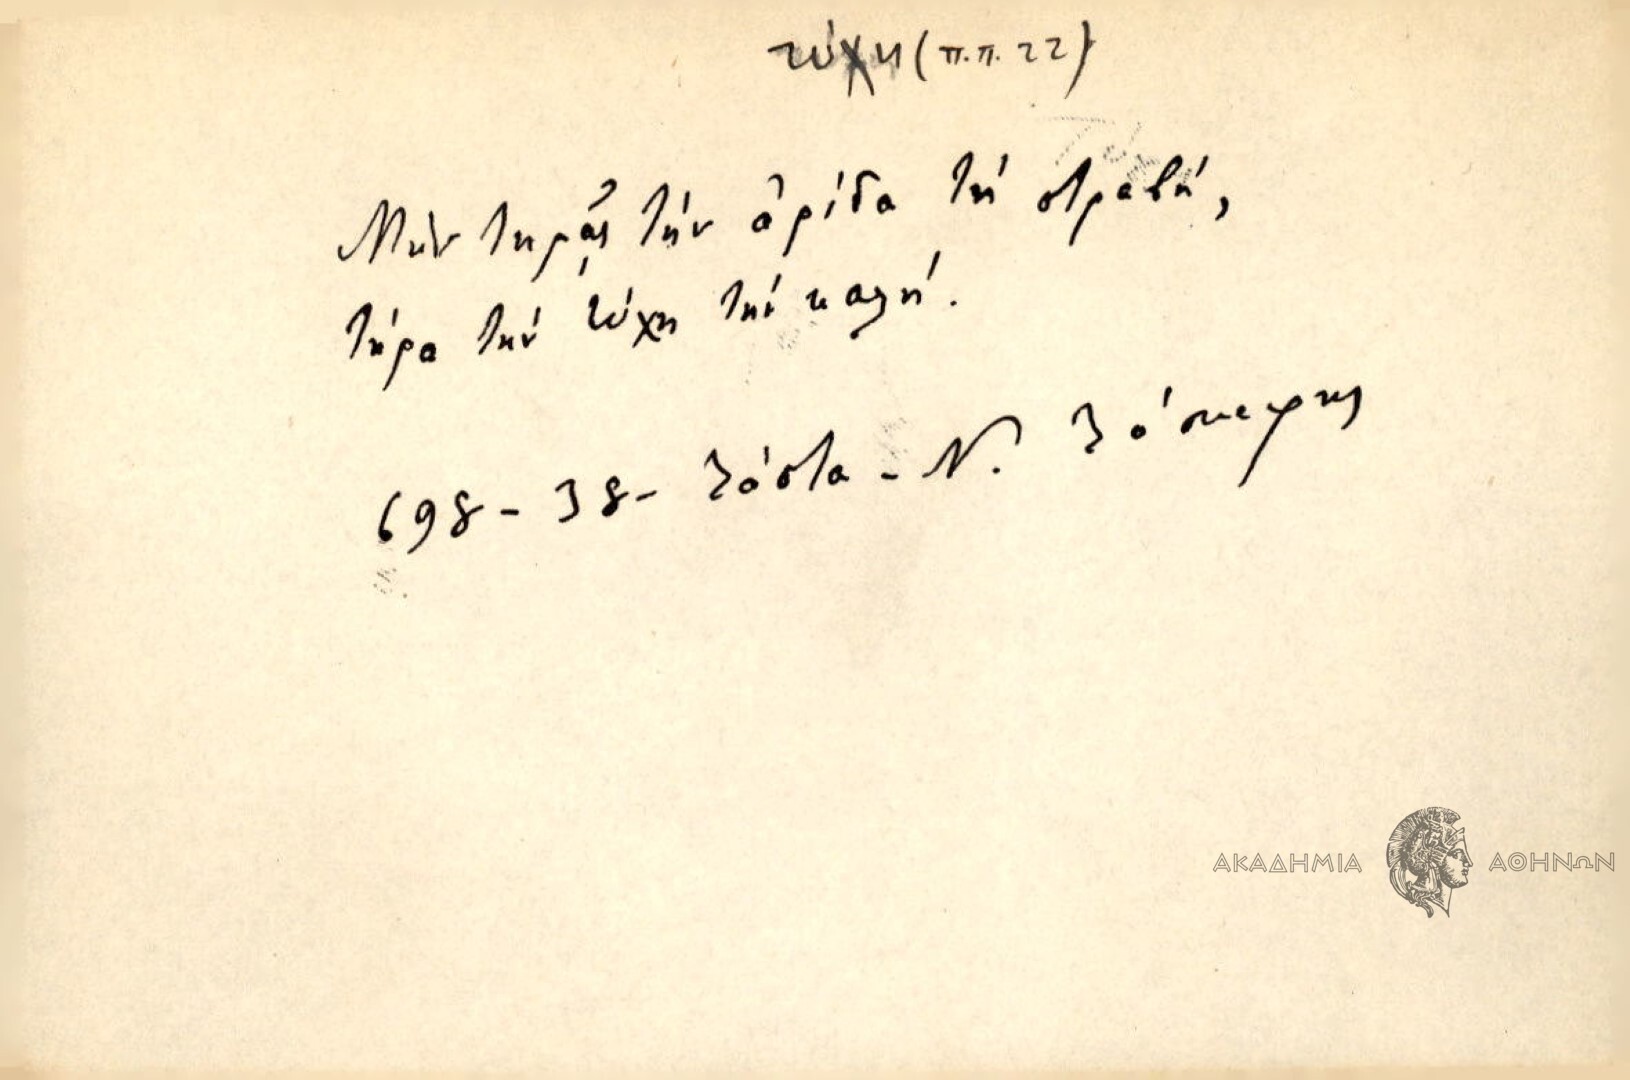 τύχη (π.π. 22)
Μὴν τηρᾷς τὴν ἀρίδα τὴ στραβή,
τήρα τὴν τύχη τὴν καλή.
698 - 38 - Ζόστα - Ν. Ζόσκεφης
ΑΚΑΔΗΜΙΑ ΑΘΗΝΩΝ